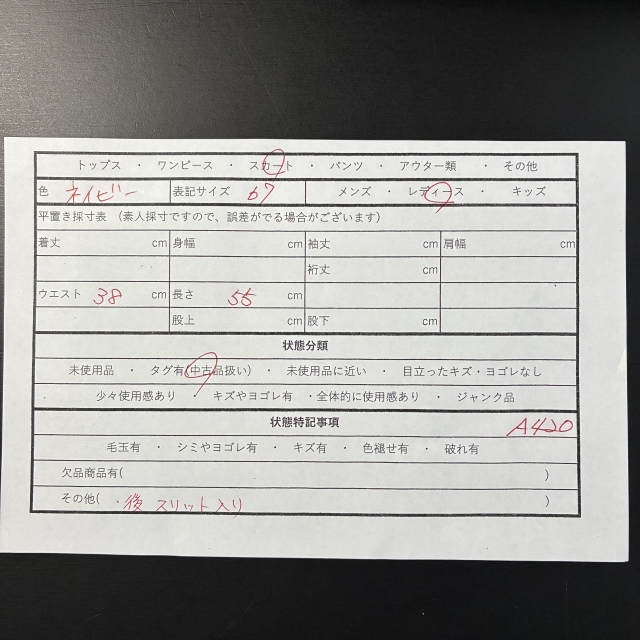 トップス ・ ワンピース ・ スカート ・ パンツ ・ アウター類 ・ その他
色 ネイビー 表記サイズ 67 メンズ ・ レディース ・ キッズ
平置き採寸表 (素人採寸ですので、誤差がでる場合がございます)
着丈 cm 身幅 cm 袖丈 cm 肩幅 cm
裄丈 cm
ウエスト 38 cm 長さ 55 cm
股上 cm 股下 cm
状態分類
未使用品 ・ タグ有(中古品扱い) ・ 未使用品に近い ・ 目立ったキズ・ヨゴレなし
少々使用感あり ・ キズやヨゴレ有 ・全体的に使用感あり ・ ジャンク品
状態特記事項 A420
毛玉有 ・ シミやヨゴレ有 ・ キズ有 ・ 色褪せ有 ・ 破れ有
欠品商品有( )
その他( ・後スリット入り )